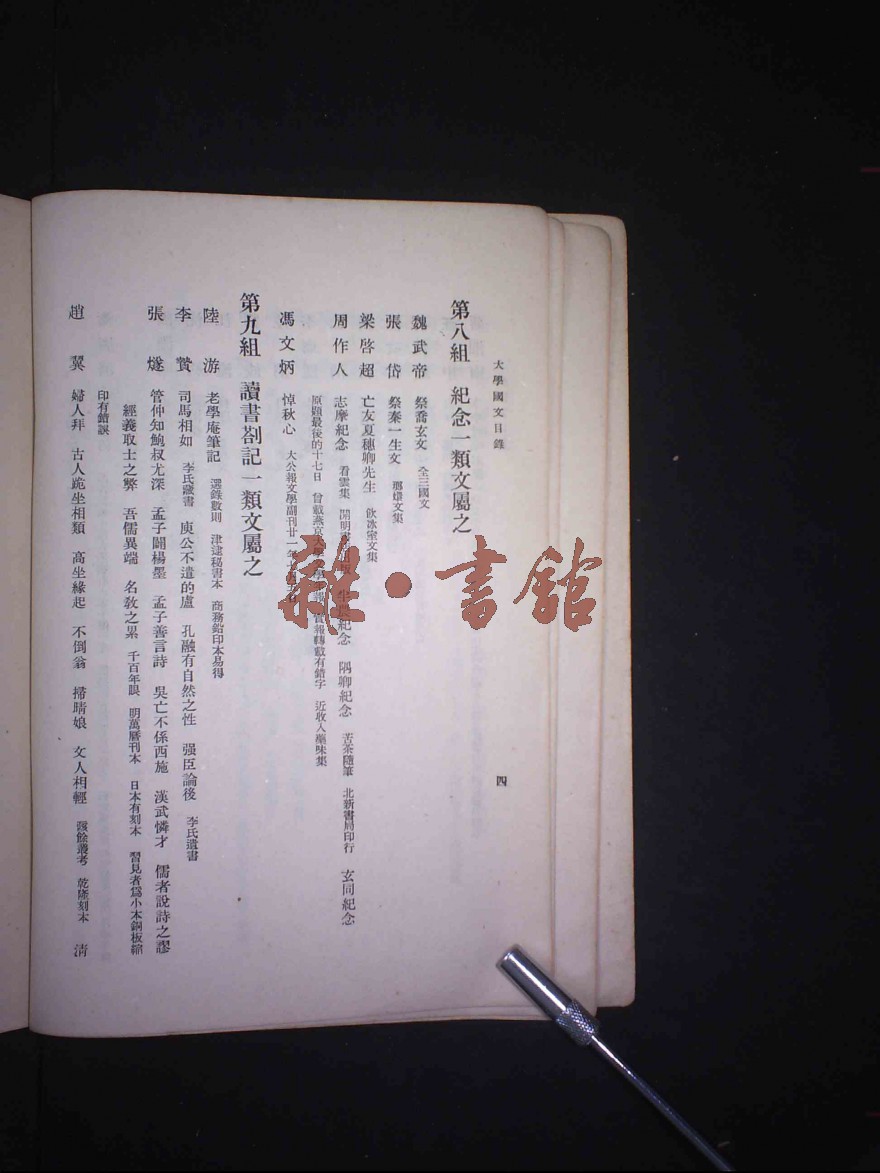 大學國文目錄
四
第八組 紀念一類文屬之
魏武帝 祭喬玄文 全三國文
張岱 祭秦一生文 瑯嬛文集
梁啓超 亡友夏穗卿先生 飲冰室文集
周作人 志摩紀念 看雲集 開明 紀念 隅卿紀念 苦茶隨筆 北新書局印行 玄同紀念
原題最後的十七日 曾載燕京大學 轉載有錯字 近收入藥味集
馮文炳 悼秋心 大公報文學副刊廿一年
第九組 讀書劄記一類文屬之
陸游 老學庵筆記 選錄數則 津逮秘書本 商務鉛印本易得
李贄 司馬相如 李氏藏書 庾公不遣的盧 孔融有自然之性 强臣論後 李氏遺書
張燧 管仲知鮑叔尤深 孟子闢楊墨 孟子善言詩 吳亡不係西施 漢武憐才 儒者說詩之謬
經義取士之弊 吾儒異端 名教之累 千百年眼 明萬曆刊本 日本有刻本 習見者爲小本銅板縮
印有錯誤
趙翼 婦人拜 古人跪坐相類 高坐緣起 不倒翁 掃晴娘 文人相輕 陔餘叢考 乾隆刻本 清
雜·書館